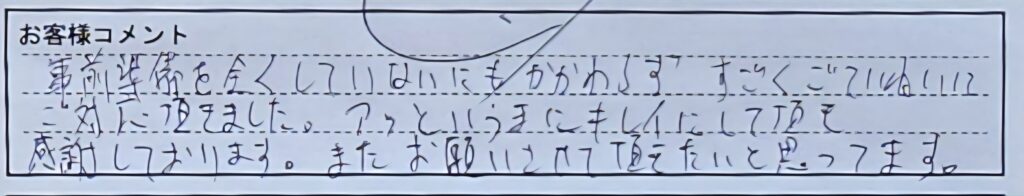 お客様コメント
事前準備を全くしていないにもかかわらず すごくごていねいに
ご対応頂きました。アッというまにキレイにして頂き
感謝しております。またお願いさせて頂きたいと思ってます。